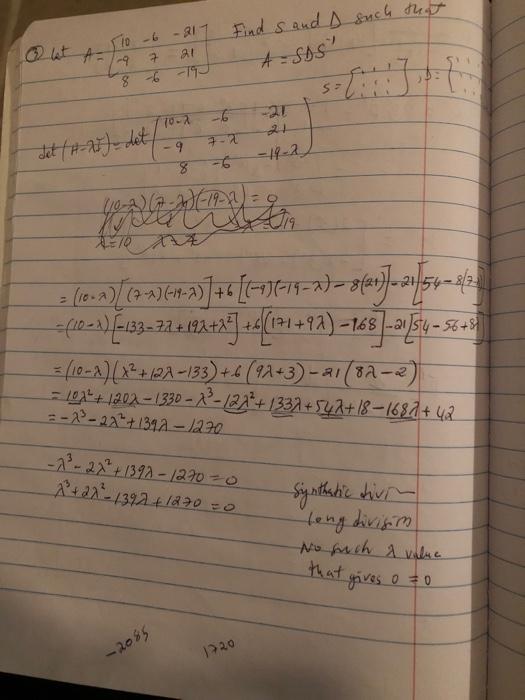 ② let A = [10 -6 -21 Find S and D such that
-9 7 21 A = SDS⁻¹
8 -6 -19] S = [ ], D = [
det(A-λI) = det (10-λ -6 -21
-9 7-λ 21
8 -6 -19-λ)
(10-λ)(7-λ)(-19-λ) = 0
λ=10
= (10-λ)[(7-λ)(-19-λ)] + 6[(-9)(-19-λ) - 8(21)] - 21[54 - 8(7-λ)
= (10-λ)[-133 - 7λ + 19λ + λ²] + 6[(171 + 9λ) - 168] - 21[54 - 56 + 8λ]
= (10-λ)(λ² + 12λ - 133) + 6(9λ + 3) - 21(8λ - 2)
= 10λ² + 120λ - 1330 - λ³ - 12λ² + 133λ + 54λ + 18 - 168λ + 42
= -λ³ - 2λ² + 139λ - 1270
-λ³ - 2λ² + 139λ - 1270 = 0
λ³ + 2λ² - 139λ + 1270 = 0
Synthetic
long division
No such λ value
that gives 0 = 0
1720